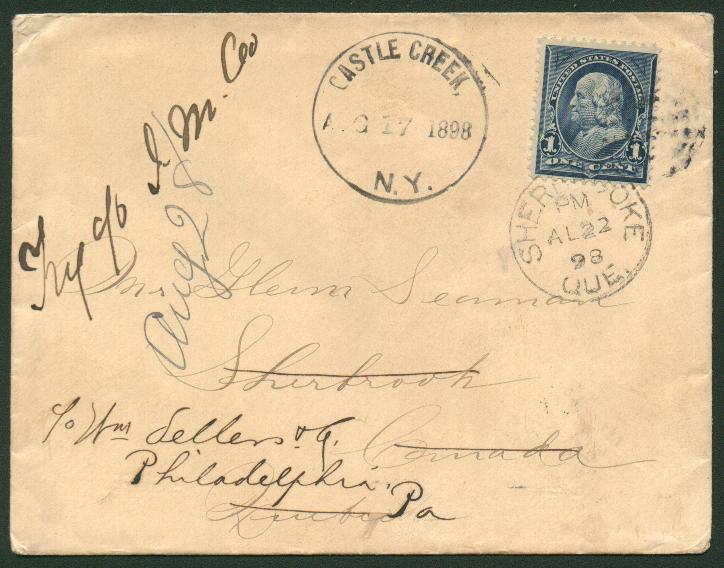 CASTLE CREEK,
AUG 17 1898
N.Y.
UNITED STATES POSTAGE
1 1
ONE CENT
SHERBROOKE
PM
AU 22
98
QUE.
Try c/o I. M. Co
Aug 28/
Mr Glenn Seaman
Sherbrook
c/o Wm Sellers & Co.
Canada
Philadelphia,
Pa
Quebec